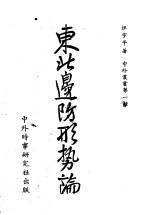 中外叢書第一種
東北邊防形勢論
中外時事研究社出版